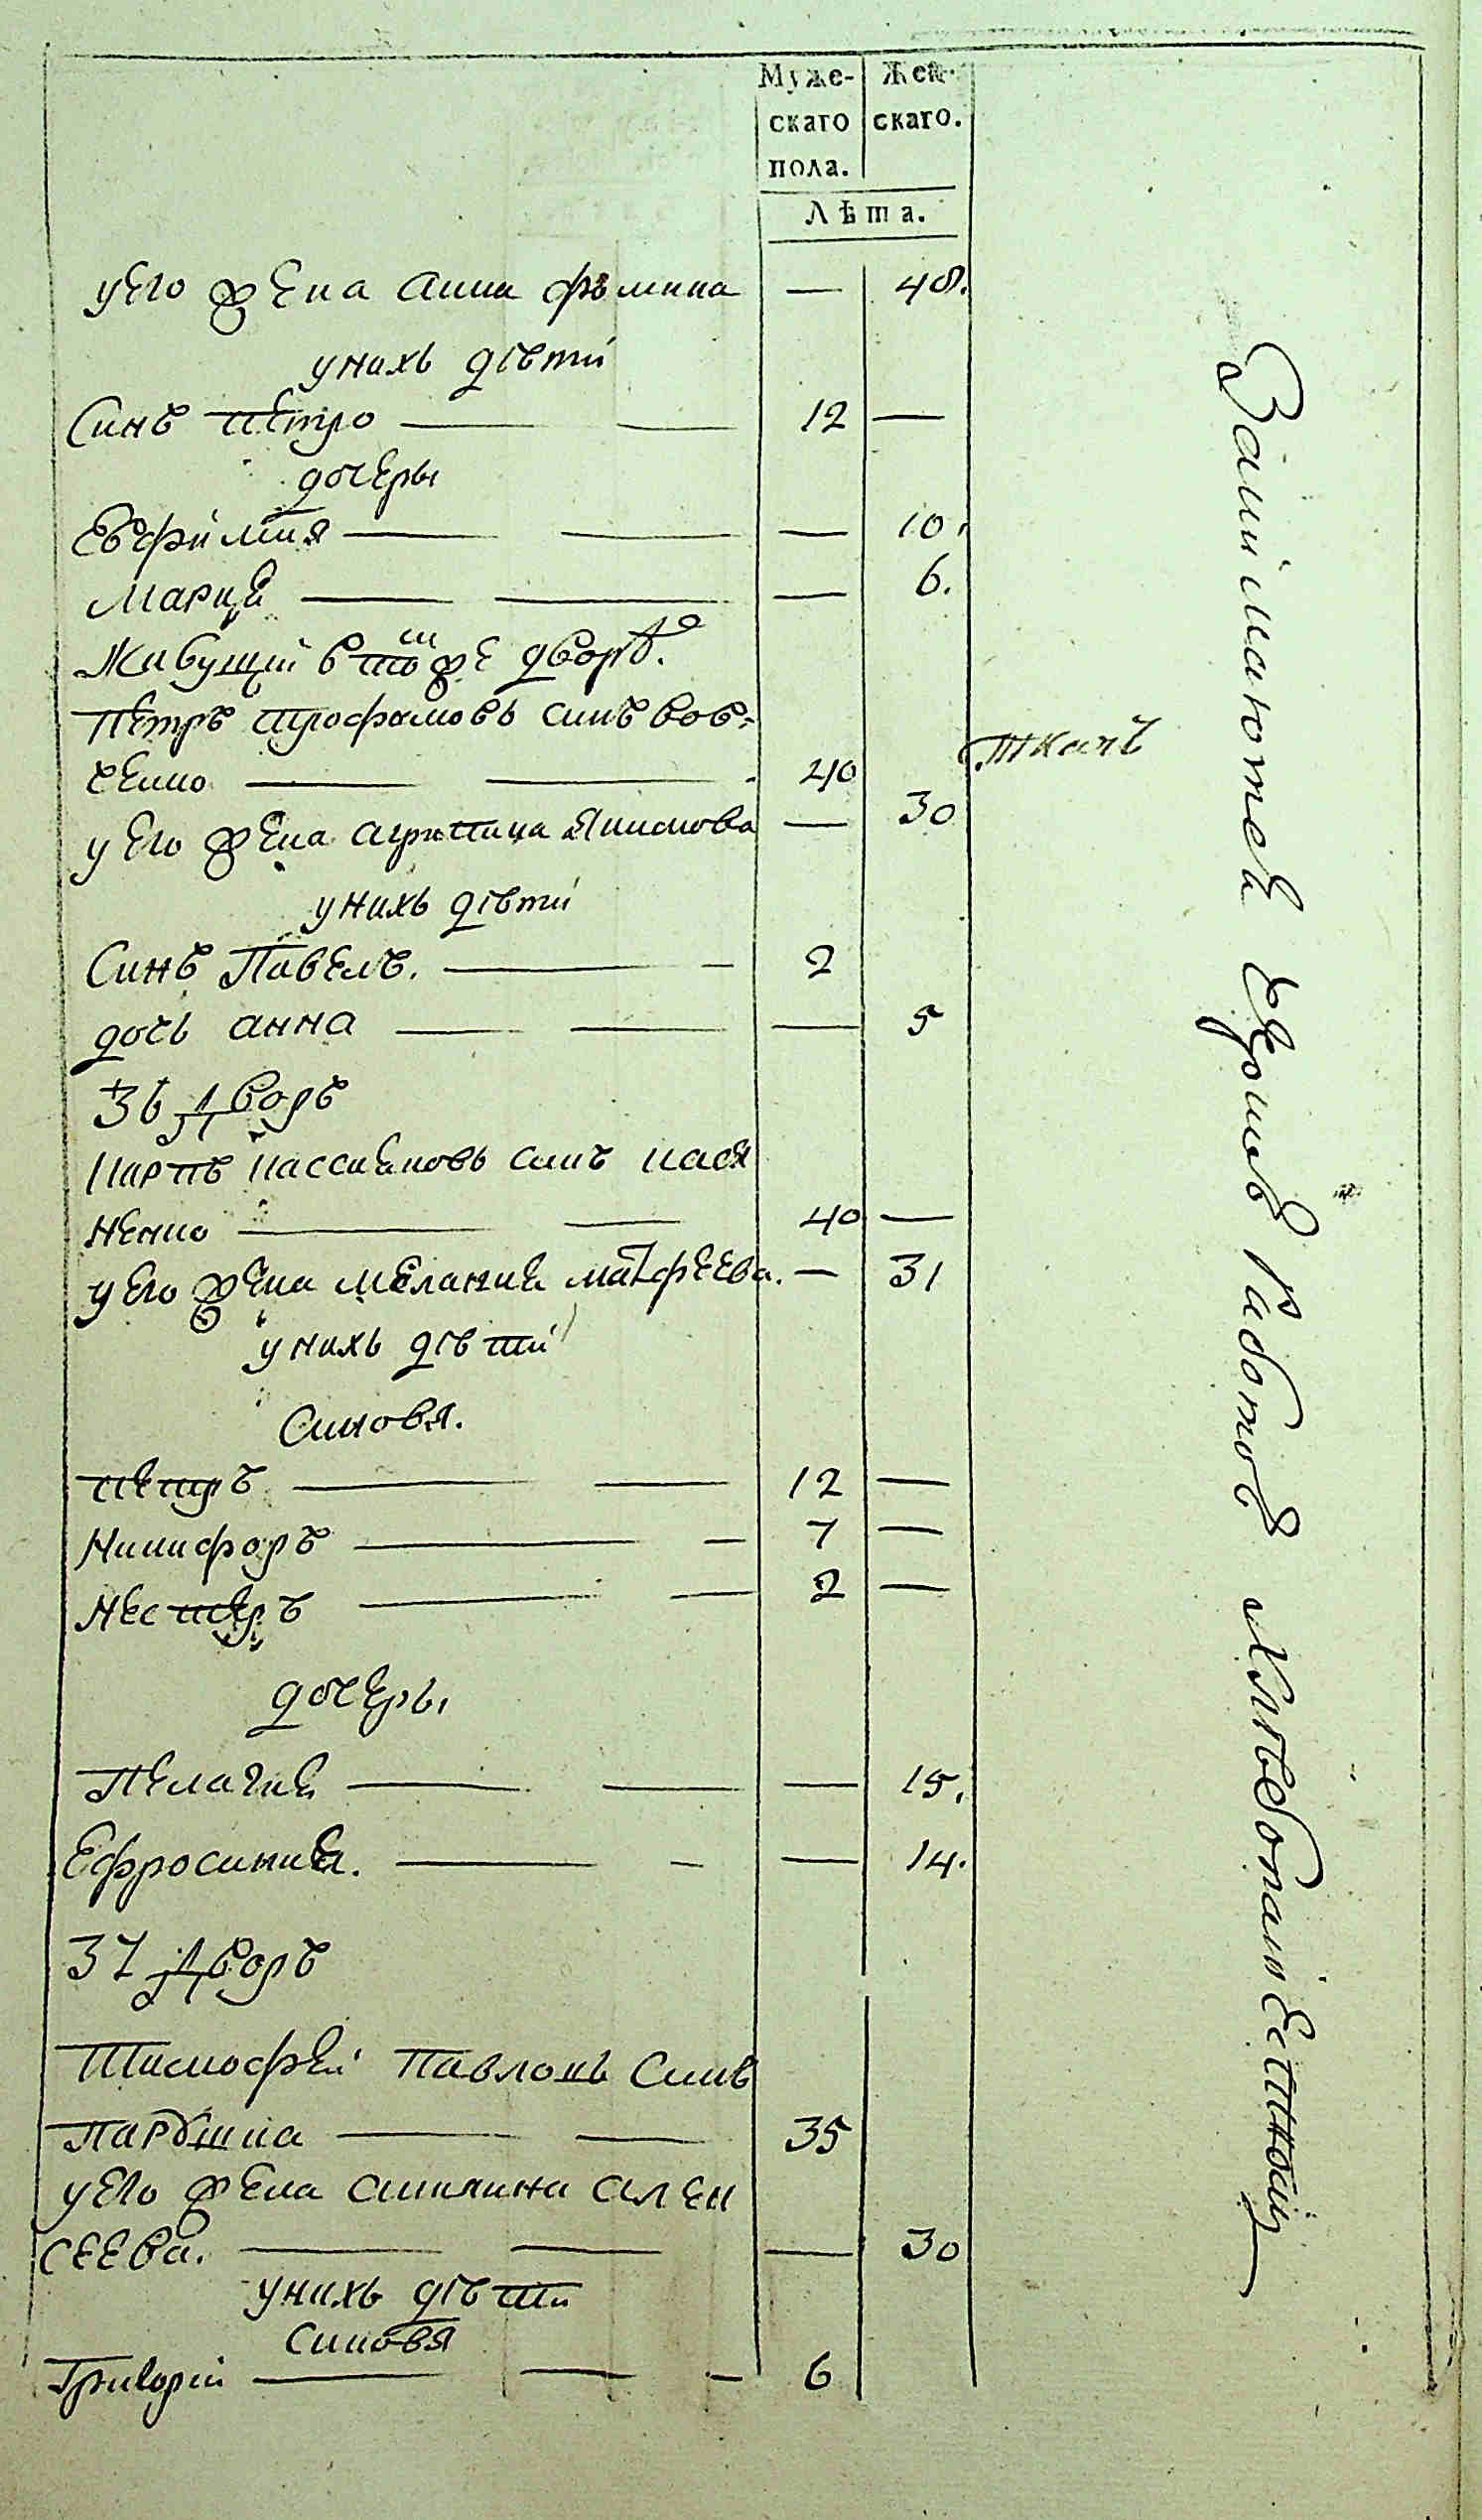 Муже-
скаго
пола.
Жен-
скаго.
Лѣта.
у его жена анна фомина — 48.
у нихъ дѣти
Синъ петро — 12 —
дочеры
Евфимия — 10.
Мария — 6.
Живущій в томже дворѣ.
Петръ трофимовъ синъ вов-
ченко — 40
ткачъ
у его жена агрипина якимова — 30
у нихъ дѣти
Синъ Павелъ. — 2
дочь анна — 5
36 дворъ
Карпъ кассияновъ синъ кася
ненко — 40 —
у его жена мелания матфеева. — 31
у нихъ дѣти
Синовя.
петръ — 12 —
Никифоръ — 7 —
Нестеръ — 2 —
дочеры
Пелагия — 15.
Ефросиния. — 14.
37 дворъ
Тимофей Павловъ Синъ
Парушка — 35
у его жена акилина алек
сеева. — 30
у нихъ дѣти
Синовя
Григорій — 6
Займаются Едною работою хлѣбопашественною